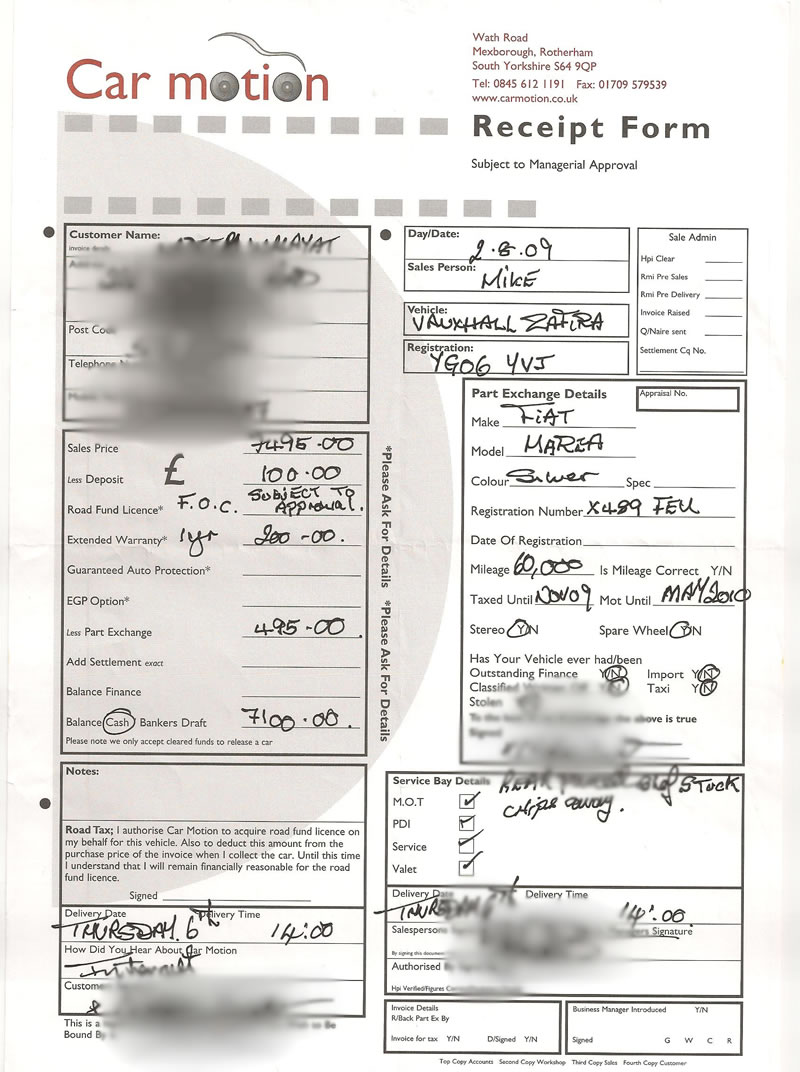 Car motion
Wath Road
Mexborough, Rotherham
South Yorkshire S64 9QP
Tel: 0845 612 1191 Fax: 01709 579539
www.carmotion.co.uk
Receipt Form
Subject to Managerial Approval
Customer Name:
Invoice details
Post Co
Telephone
Day/Date:
2.8.09
Sales Person:
MIKE
Vehicle:
VAUXHALL ZAFIRA
Registration:
YG06 YVJ
Sale Admin
Hpi Clear
Rmi Pre Sales
Rmi Pre Delivery
Invoice Raised
Q/Naire sent
Settlement Cq No.
Sales Price 7495-00
Less Deposit £ 100.00
Road Fund Licence* F.O.C. SUBJECT TO
APPROVAL.
Extended Warranty* 1yr 200-00.
Guaranteed Auto Protection*
EGP Option*
Less Part Exchange 495-00.
Add Settlement exact
Balance Finance
Balance Cash Bankers Draft 7100.00.
Please note we only accept cleared funds to release a car
*Please Ask For Details *Please Ask For Details
Part Exchange Details
Appraisal No.
Make FIAT
Model MAREA
Colour Silver Spec
Registration Number X489 FEU
Date Of Registration
Mileage 60,000 Is Mileage Correct Y/N
Taxed Until NOV09 Mot Until MAY2010
Stereo Y/N Spare Wheel Y/N
Has Your Vehicle ever had/been
Outstanding Finance Y/N Import Y/N
Classified Y/N Taxi Y/N
Stolen
above is true
Notes:
Road Tax; I authorise Car Motion to acquire road fund licence on
my behalf for this vehicle. Also to deduct this amount from the
purchase price of the invoice when I collect the car. Until this time
I understand that I will remain financially reasonable for the road
fund licence.
Signed
Delivery Date Delivery Time
THURSDAY 6th 14:00
How Did You Hear About Car Motion
Internet
Custome
This is a
Bound By
Service Bay Details REAR STOCK
chips away.
M.O.T
PDI
Service
Valet
Delivery Date Delivery Time
THURSDAY 6th 14:00
Salespersons Signature
By signing this document
Authorised
Hpi Verified/Figures
Invoice Details
R/Back Part Ex By
Invoice for tax Y/N D/Signed Y/N
Business Manager Introduced Y/N
Signed G W C R
Top Copy Accounts Second Copy Workshop Third Copy Sales Fourth Copy Customer